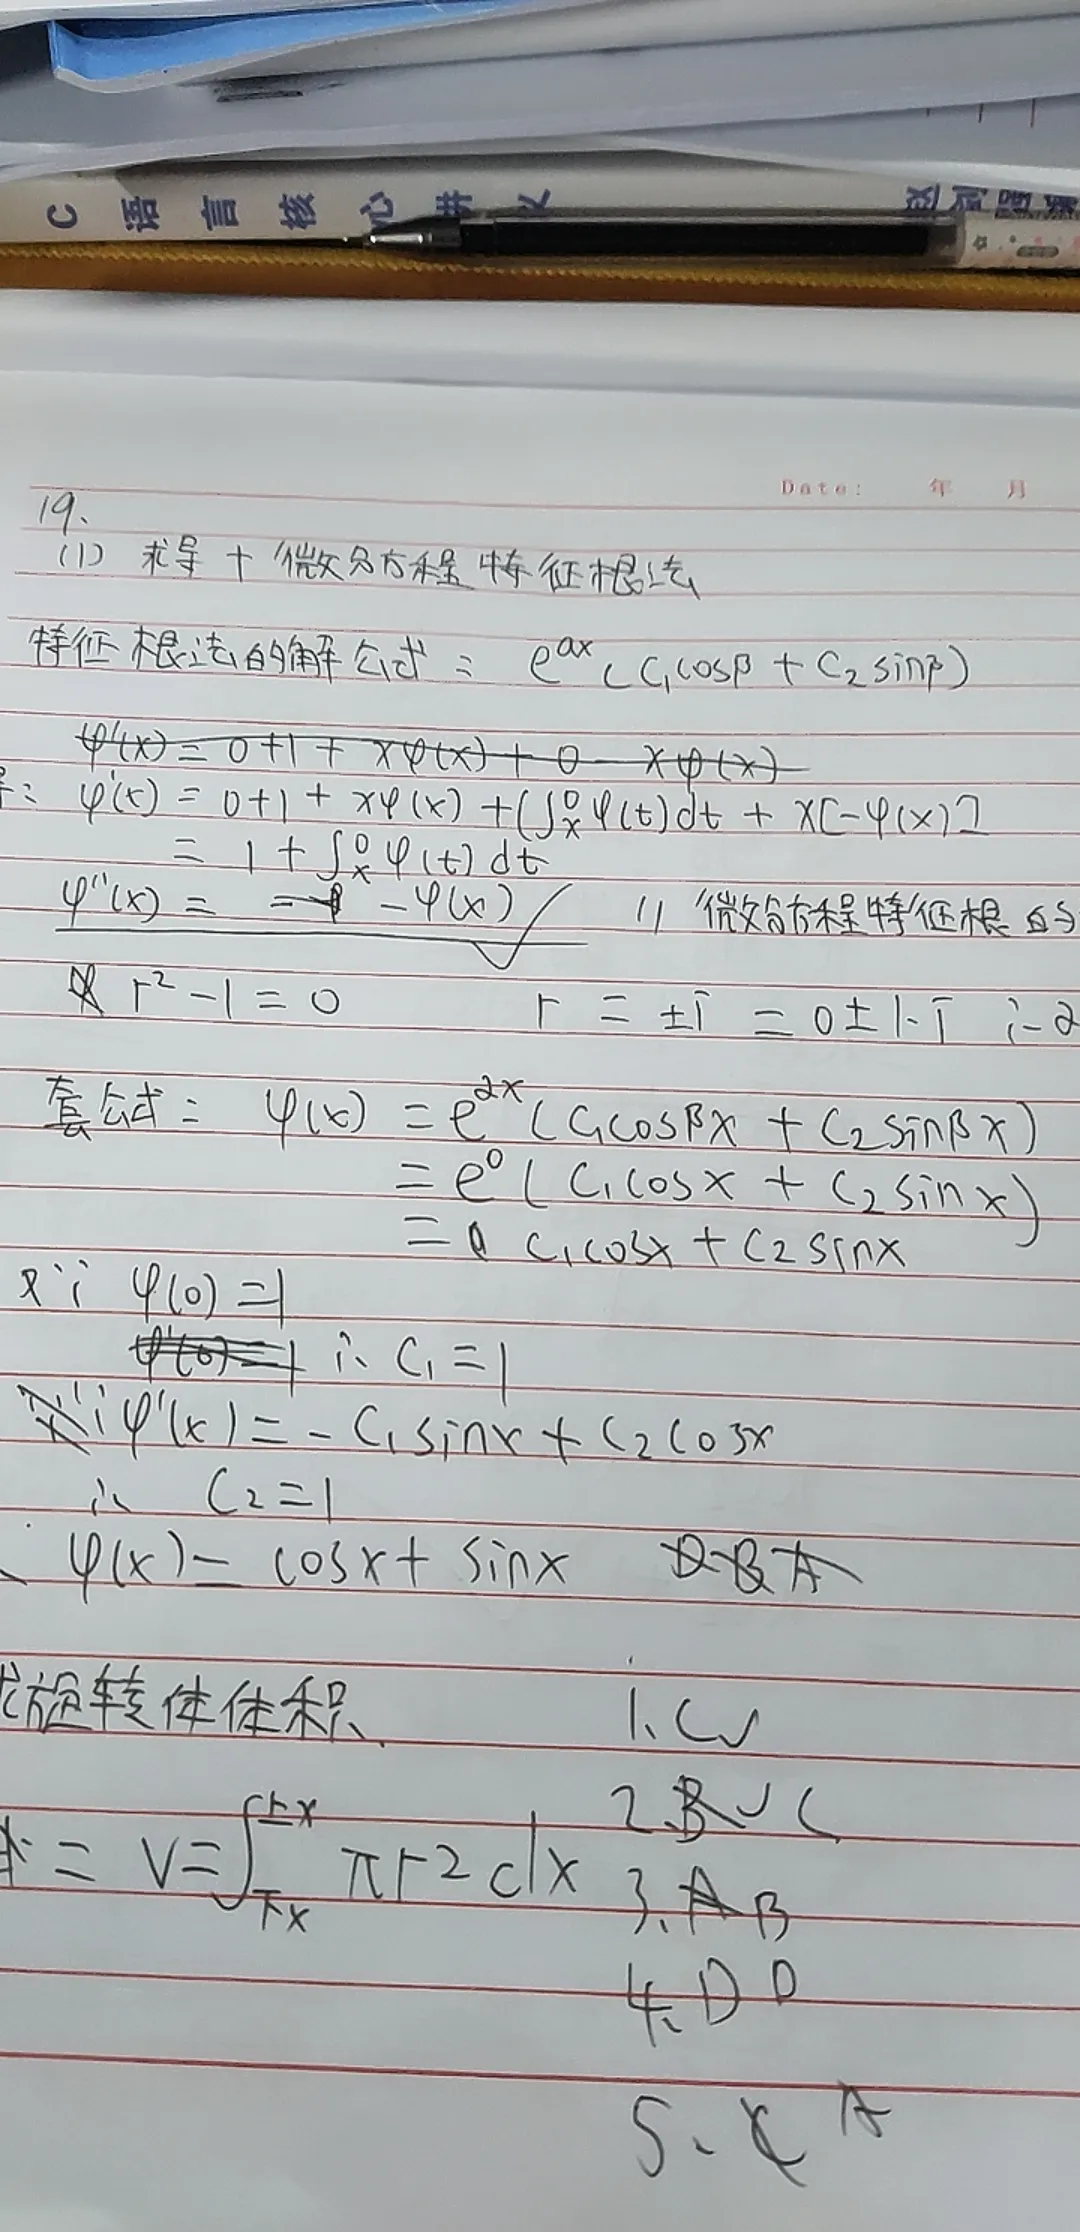 C 语言核心讲义
Date: 年 月
19、
(1) 求导 + 微分方程特征根法
特征根法的解公式: e^{ax}(C₁cosβ + C₂sinβ)
φ'(x) = 0+1 + xφ(x) + 0 - xφ(x)
: φ'(x) = 0+1 + xφ(x) + (∫ₓ⁰ φ(t)dt + x[-φ(x)]
= 1 + ∫ₓ⁰ φ(t)dt
φ''(x) = = -φ(x) √ 11 微分方程特征根的
r² - 1 = 0 r = ±i = 0 ± 1·i ∴ 2
套公式: φ(x) = e^{2x}(C₁cosβx + C₂sinβx)
= e⁰(C₁cosx + C₂sinx)
= C₁cosx + C₂sinx
又∵ φ(0) = 1
φ'(0) = 1 ∴ C₁ = 1
∵ φ'(x) = -C₁sinx + C₂cosx
∴ C₂ = 1
φ(x) = cosx + sinx D B A
求旋转体体积、
1、C √
2、B √ C
式 = V = ∫_{下x}^{上x} πr2dx
3、A B
4、D D
5、C A